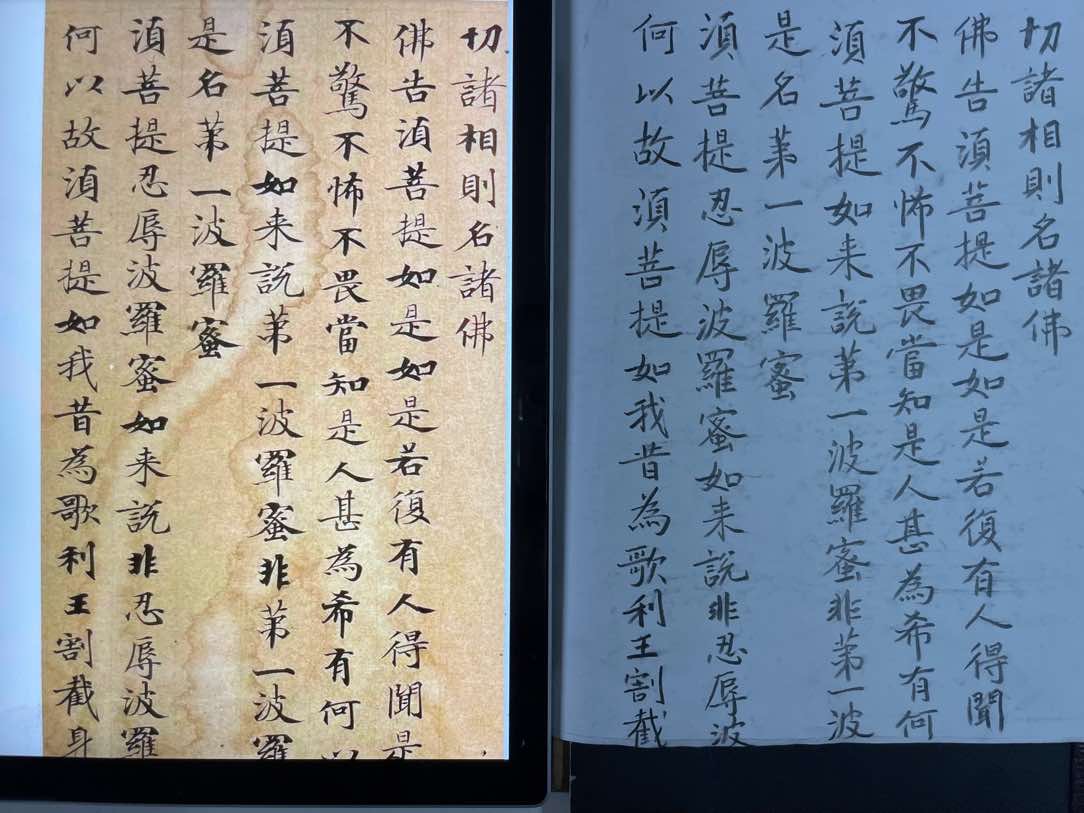 切諸相則名諸佛
佛告湏菩提如是如是若復有人得聞是
不驚不怖不畏當知是人甚為希有何以
湏菩提如来説苐一波羅蜜非苐一波羅
是名苐一波羅蜜
湏菩提忍辱波羅蜜如来説非忍辱波羅
何以故湏菩提如我昔為歌利王割截身
切諸相則名諸佛
佛告湏菩提如是如是若復有人得聞
不驚不怖不畏當知是人甚為希有何
湏菩提如来説苐一波羅蜜非苐一波
是名苐一波羅蜜
湏菩提忍辱波羅蜜如来説非忍辱波
何以故湏菩提如我昔為歌利王割截